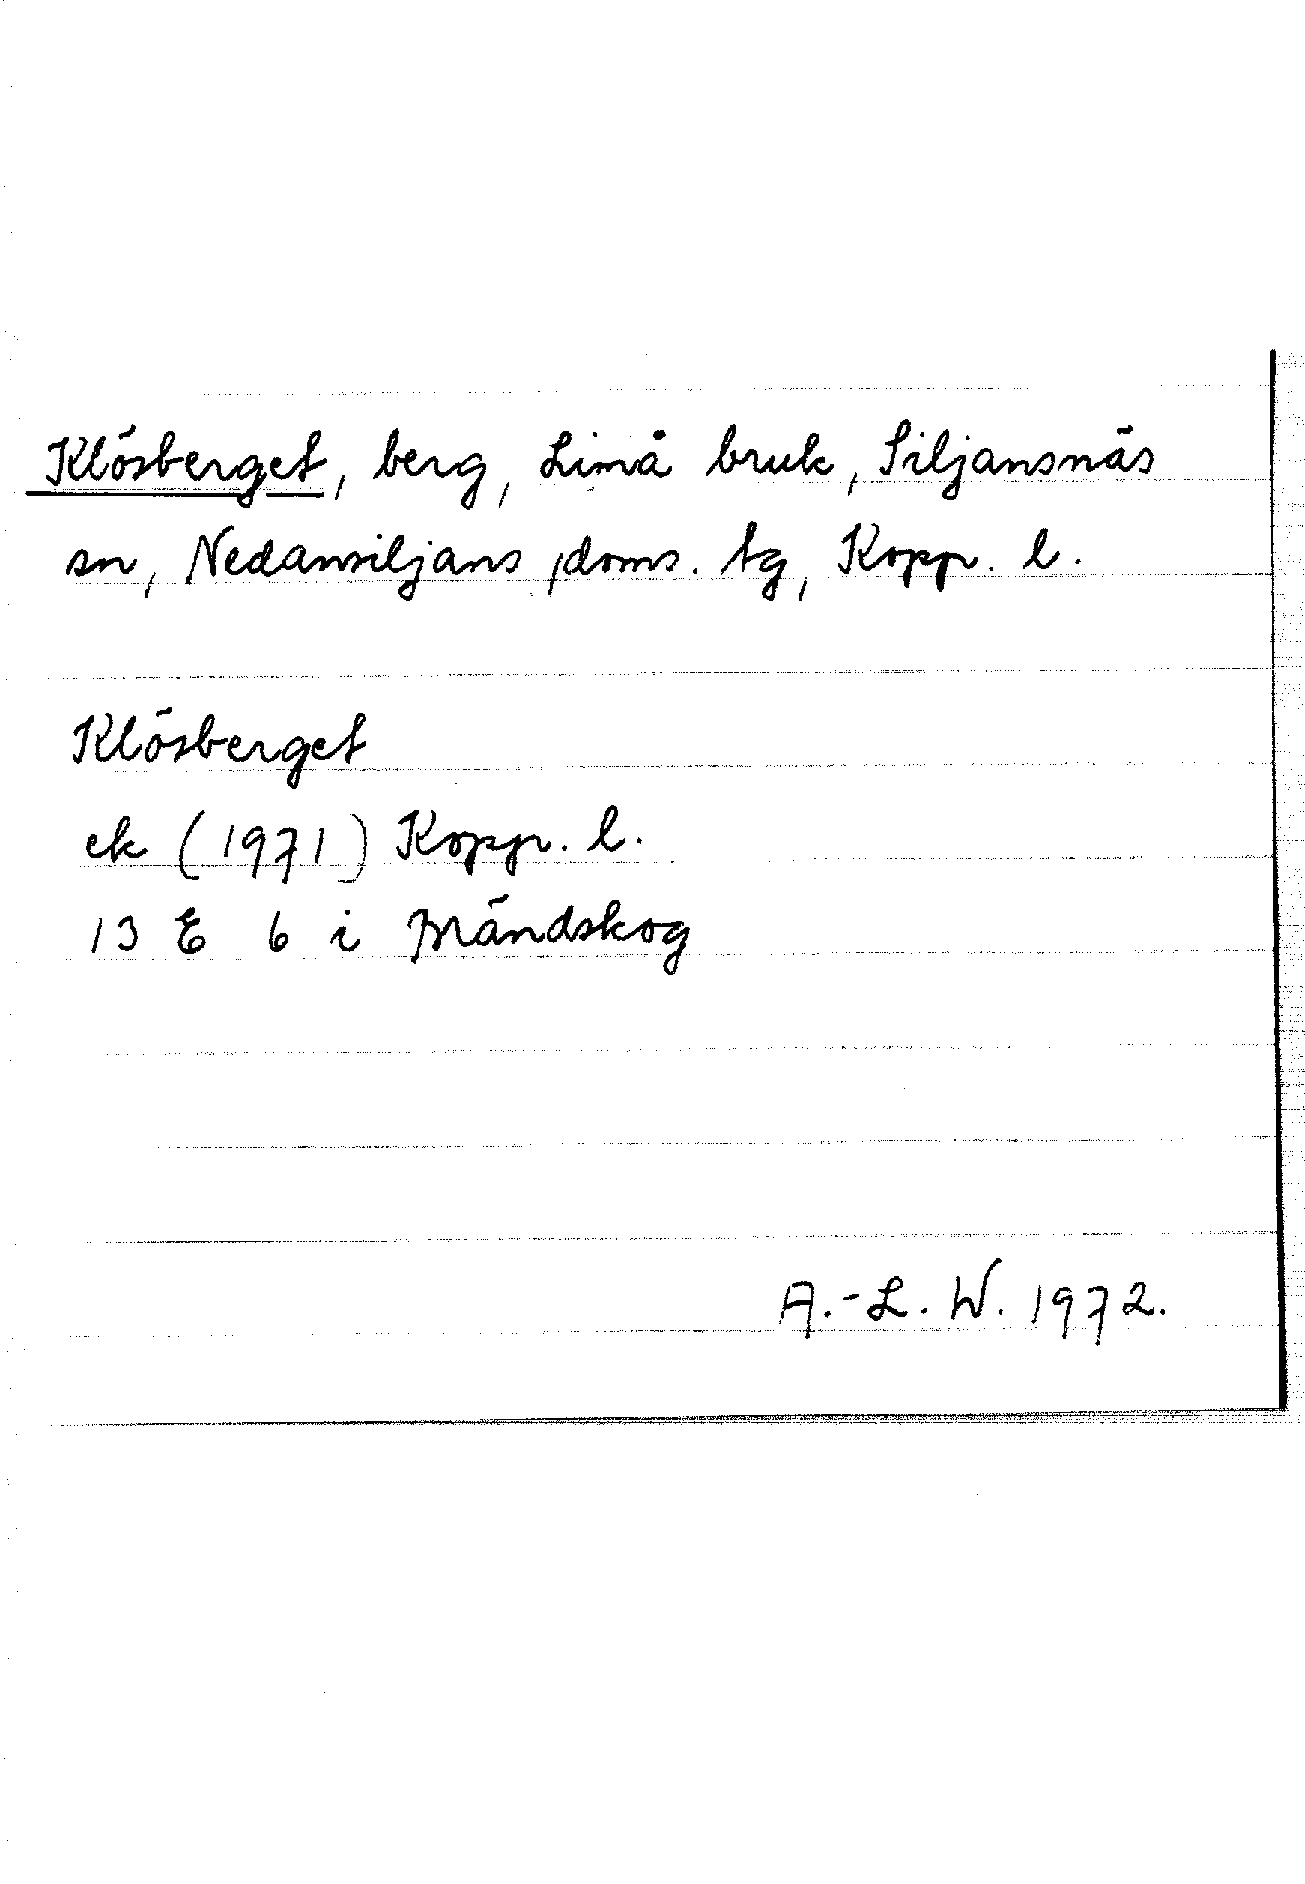 Klösberget, berg, Limå bruk, Siljansnäs
sn, Nedansiljans doms. tg, Kopp. l.
Klösberget
ek (1971) Kopp. l.
13 E 6 i Mändskog
A.-L. W. 1972.